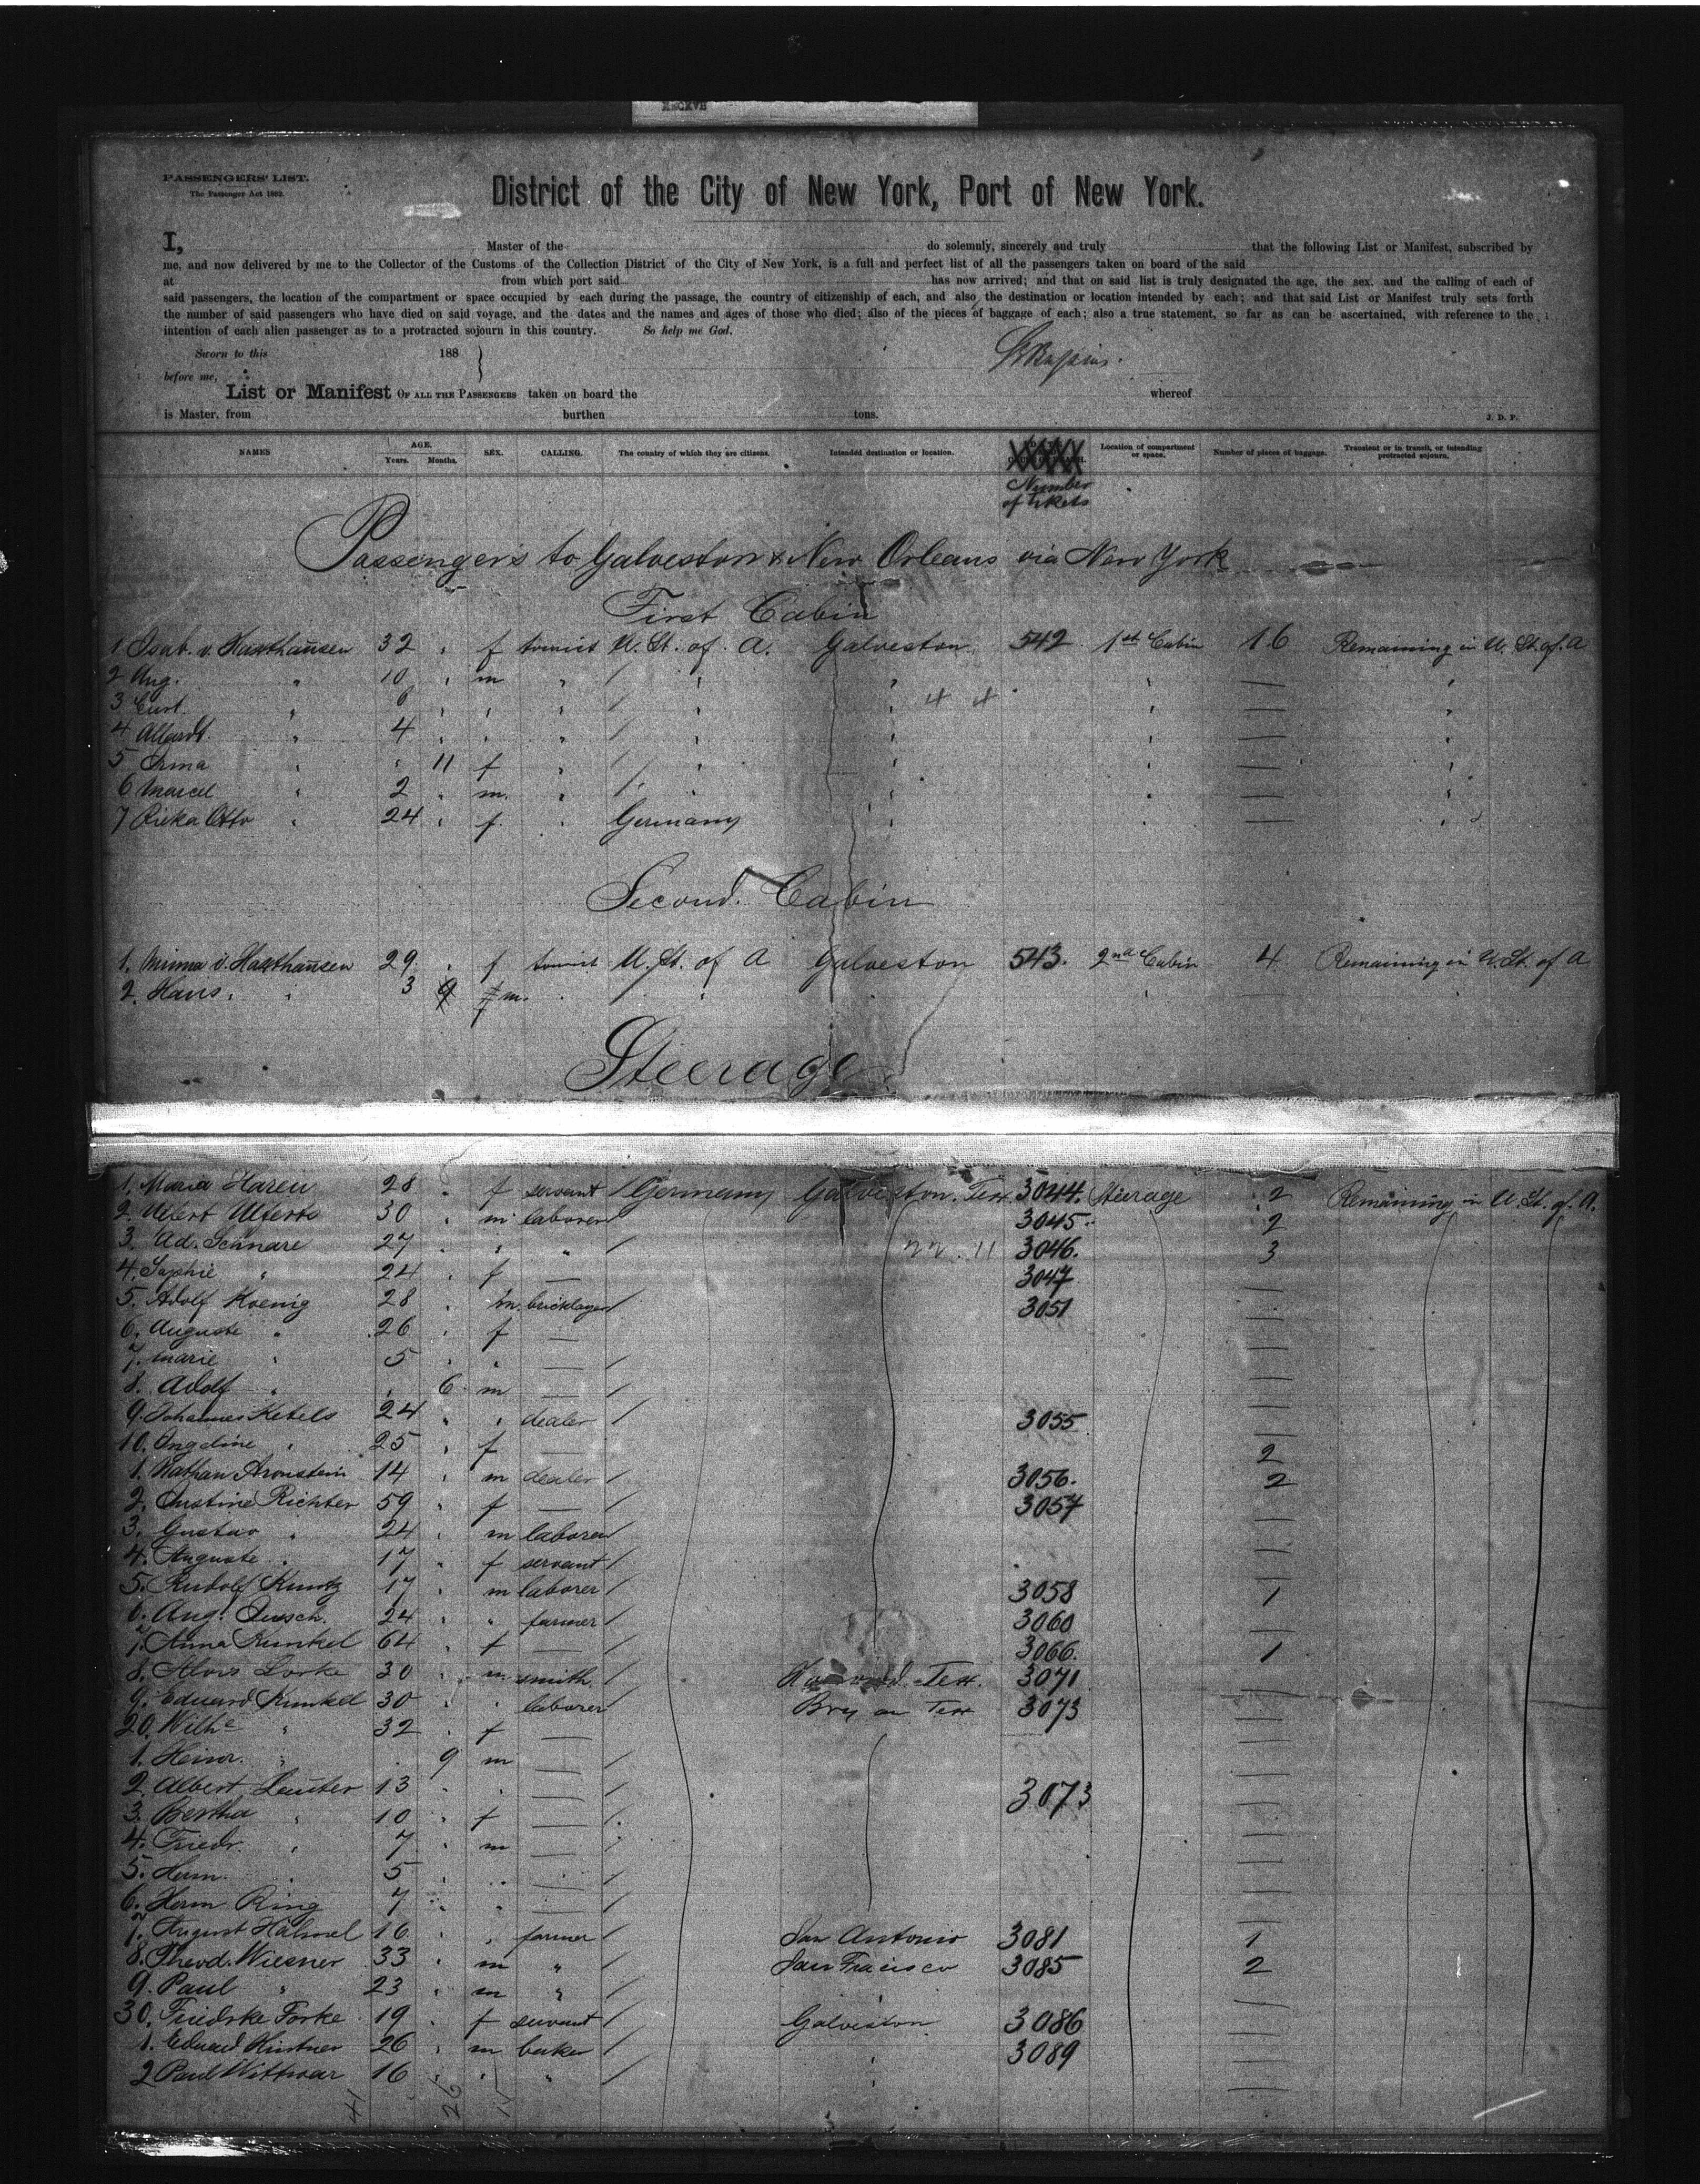 PASSENGERS' LIST.
The Passenger Act 1882.
District of the City of New York, Port of New York.
I, Master of the do solemnly, sincerely and truly that the following List or Manifest, subscribed by
me, and now delivered by me to the Collector of the Customs of the Collection District of the City of New York, is a full and perfect list of all the passengers taken on board of the said
at from which port said has now arrived; and that on said list is truly designated the age, the sex, and the calling of each of
said passengers, the location of the compartment or space occupied by each during the passage, the country of citizenship of each, and also the destination or location intended by each; and that said List or Manifest truly sets forth
the number of said passengers who have died on said voyage, and the dates and the names and ages of those who died; also of the pieces of baggage of each; also a true statement, so far as can be ascertained, with reference to the
intention of each alien passenger as to a protracted sojourn in this country. So help me God.
Sworn to this 188
before me,
List or Manifest OF ALL THE PASSENGERS taken on board the whereof
is Master, from burthen tons. J. D. P.
NAMES AGE. Years. Months. SEX. CALLING. The country of which they are citizens. Intended destination or location. Location of compartment or space. Number of pieces of baggage. Transient or in transit, or intending protracted sojourn.
Number
of tikets
Passengers to Galveston & New Orleans via New York
First Cabin
1 Isab. v. Haxthausen 32 f tourist U. St. of A. Galveston 542 1st Cabin 16 Remaining in U. St. of A
2 Aug. " 10 m
3 Curt. " 6 4 4
4 Allardt " 4
5 Irma " 11 f
6 Marcel " 2 m.
7 Rieka Otto 24 f. Germany
Second Cabin
1. Minna v. Haxthausen 29 f tourist U. St. of A Galveston 543. 2nd Cabin 4 Remaining in U. St. of A
2. Hans. " 3 m.
Steerage
1. Maria Haren 28 f servant Germany Galveston. Tex. 3044. Steerage 2 Remaining in U. St. of A.
2. Ulfert Ulferts 30 m laborer 3045. 2
3. Ad. Schnare 27 " " 22. 11 3046. 3
4. Sophie " 24 f — 3047
5. Adolf Koenig 28 m. bricklayer 3051
6. Auguste " 26 f —
7. Marie " 5 " —
8. Adolf " 6 m —
9. Johannes Ketels 24 " dealer 3055
10. Ingeline " 25 f — 2
1. Nathan Aronstein 14 m dealer 3056. 2
2. Justine Richter 59 f — 3057
3. Gustav " 24 m laborer
4. Auguste " 17 f servant
5. Rudolf Kuntz 17 m laborer 3058 1
6. Aug. 24 " farmer 3060
7. Anna Kunkel 64 f — 3066. 1
8. Alois Lorke 30 m smith Tex. 3071
9. Eduard Kunkel 30 " laborer Bryan Tex 3073
20. Wilhe " 32 f —
1. Heinr. " 9 m —
2. Albert Lauter 13 " — 3073
3. Bertha " 10 f —
4. Friedr. " 7 m —
5. Herm. " 5 " —
6. Herm Ring 7 " —
7. August 16 " farmer San Antonio 3081 1
8. Theod. Wiesner 33 m " San Fracisco 3085 2
9. Paul " 23 m "
30. Friedrke Forke 19 f servant Galveston 3086
1. Eduard Kirstner 26 m baker 3089
2 Paul Wittwar 16 " "
41 26 15